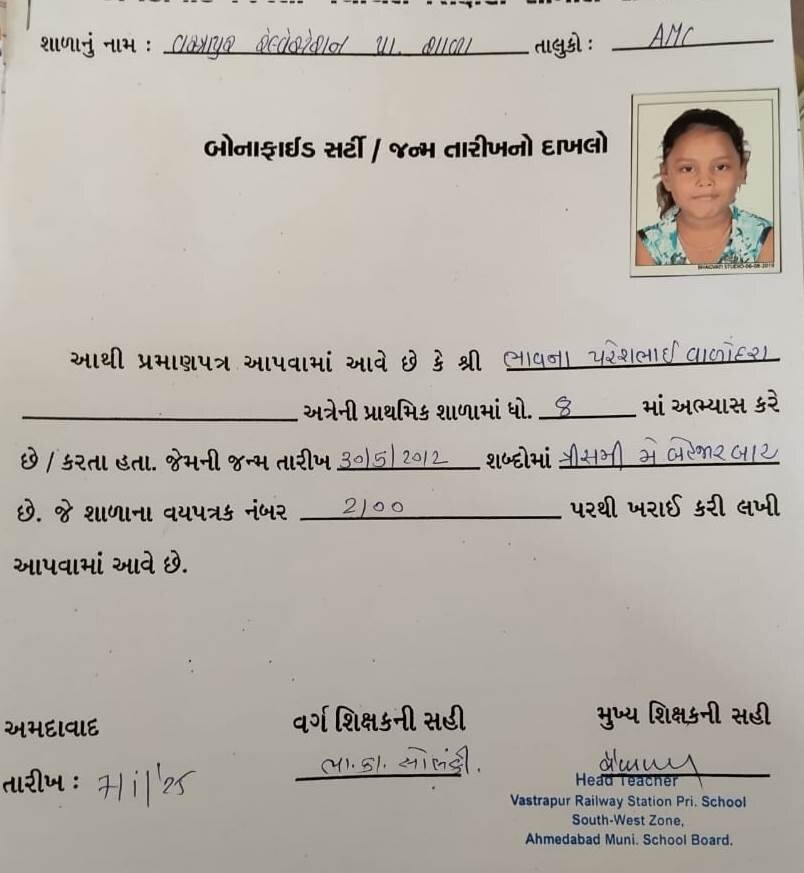 શાળાનું નામ : વસ્ત્રાપુર રેલ્વેસ્ટેશન પ્રા. શાળા તાલુકો : AMC
બોનાફાઈડ સર્ટી / જન્મ તારીખનો દાખલો
BHAGVATI STUDIO-06-08-2019
આથી પ્રમાણપત્ર આપવામાં આવે છે કે શ્રી ભાવના પરેશભાઈ
અત્રેની પ્રાથમિક શાળામાં ધો. 8 માં અભ્યાસ કરે
છે / કરતા હતા. જેમની જન્મ તારીખ 30/5/2012 શબ્દોમાં ત્રીસમી મે બેહજાર બાર
છે. જે શાળાના વયપત્રક નંબર 2100 પરથી ખરાઈ કરી લખી
આપવામાં આવે છે.
અમદાવાદ વર્ગ શિક્ષકની સહી મુખ્ય શિક્ષકની સહી
તારીખ : 7/1/'25 ભા.કા. સોલંકી.
Head Teacher
Vastrapur Railway Station Pri. School
South-West Zone,
Ahmedabad Muni. School Board.